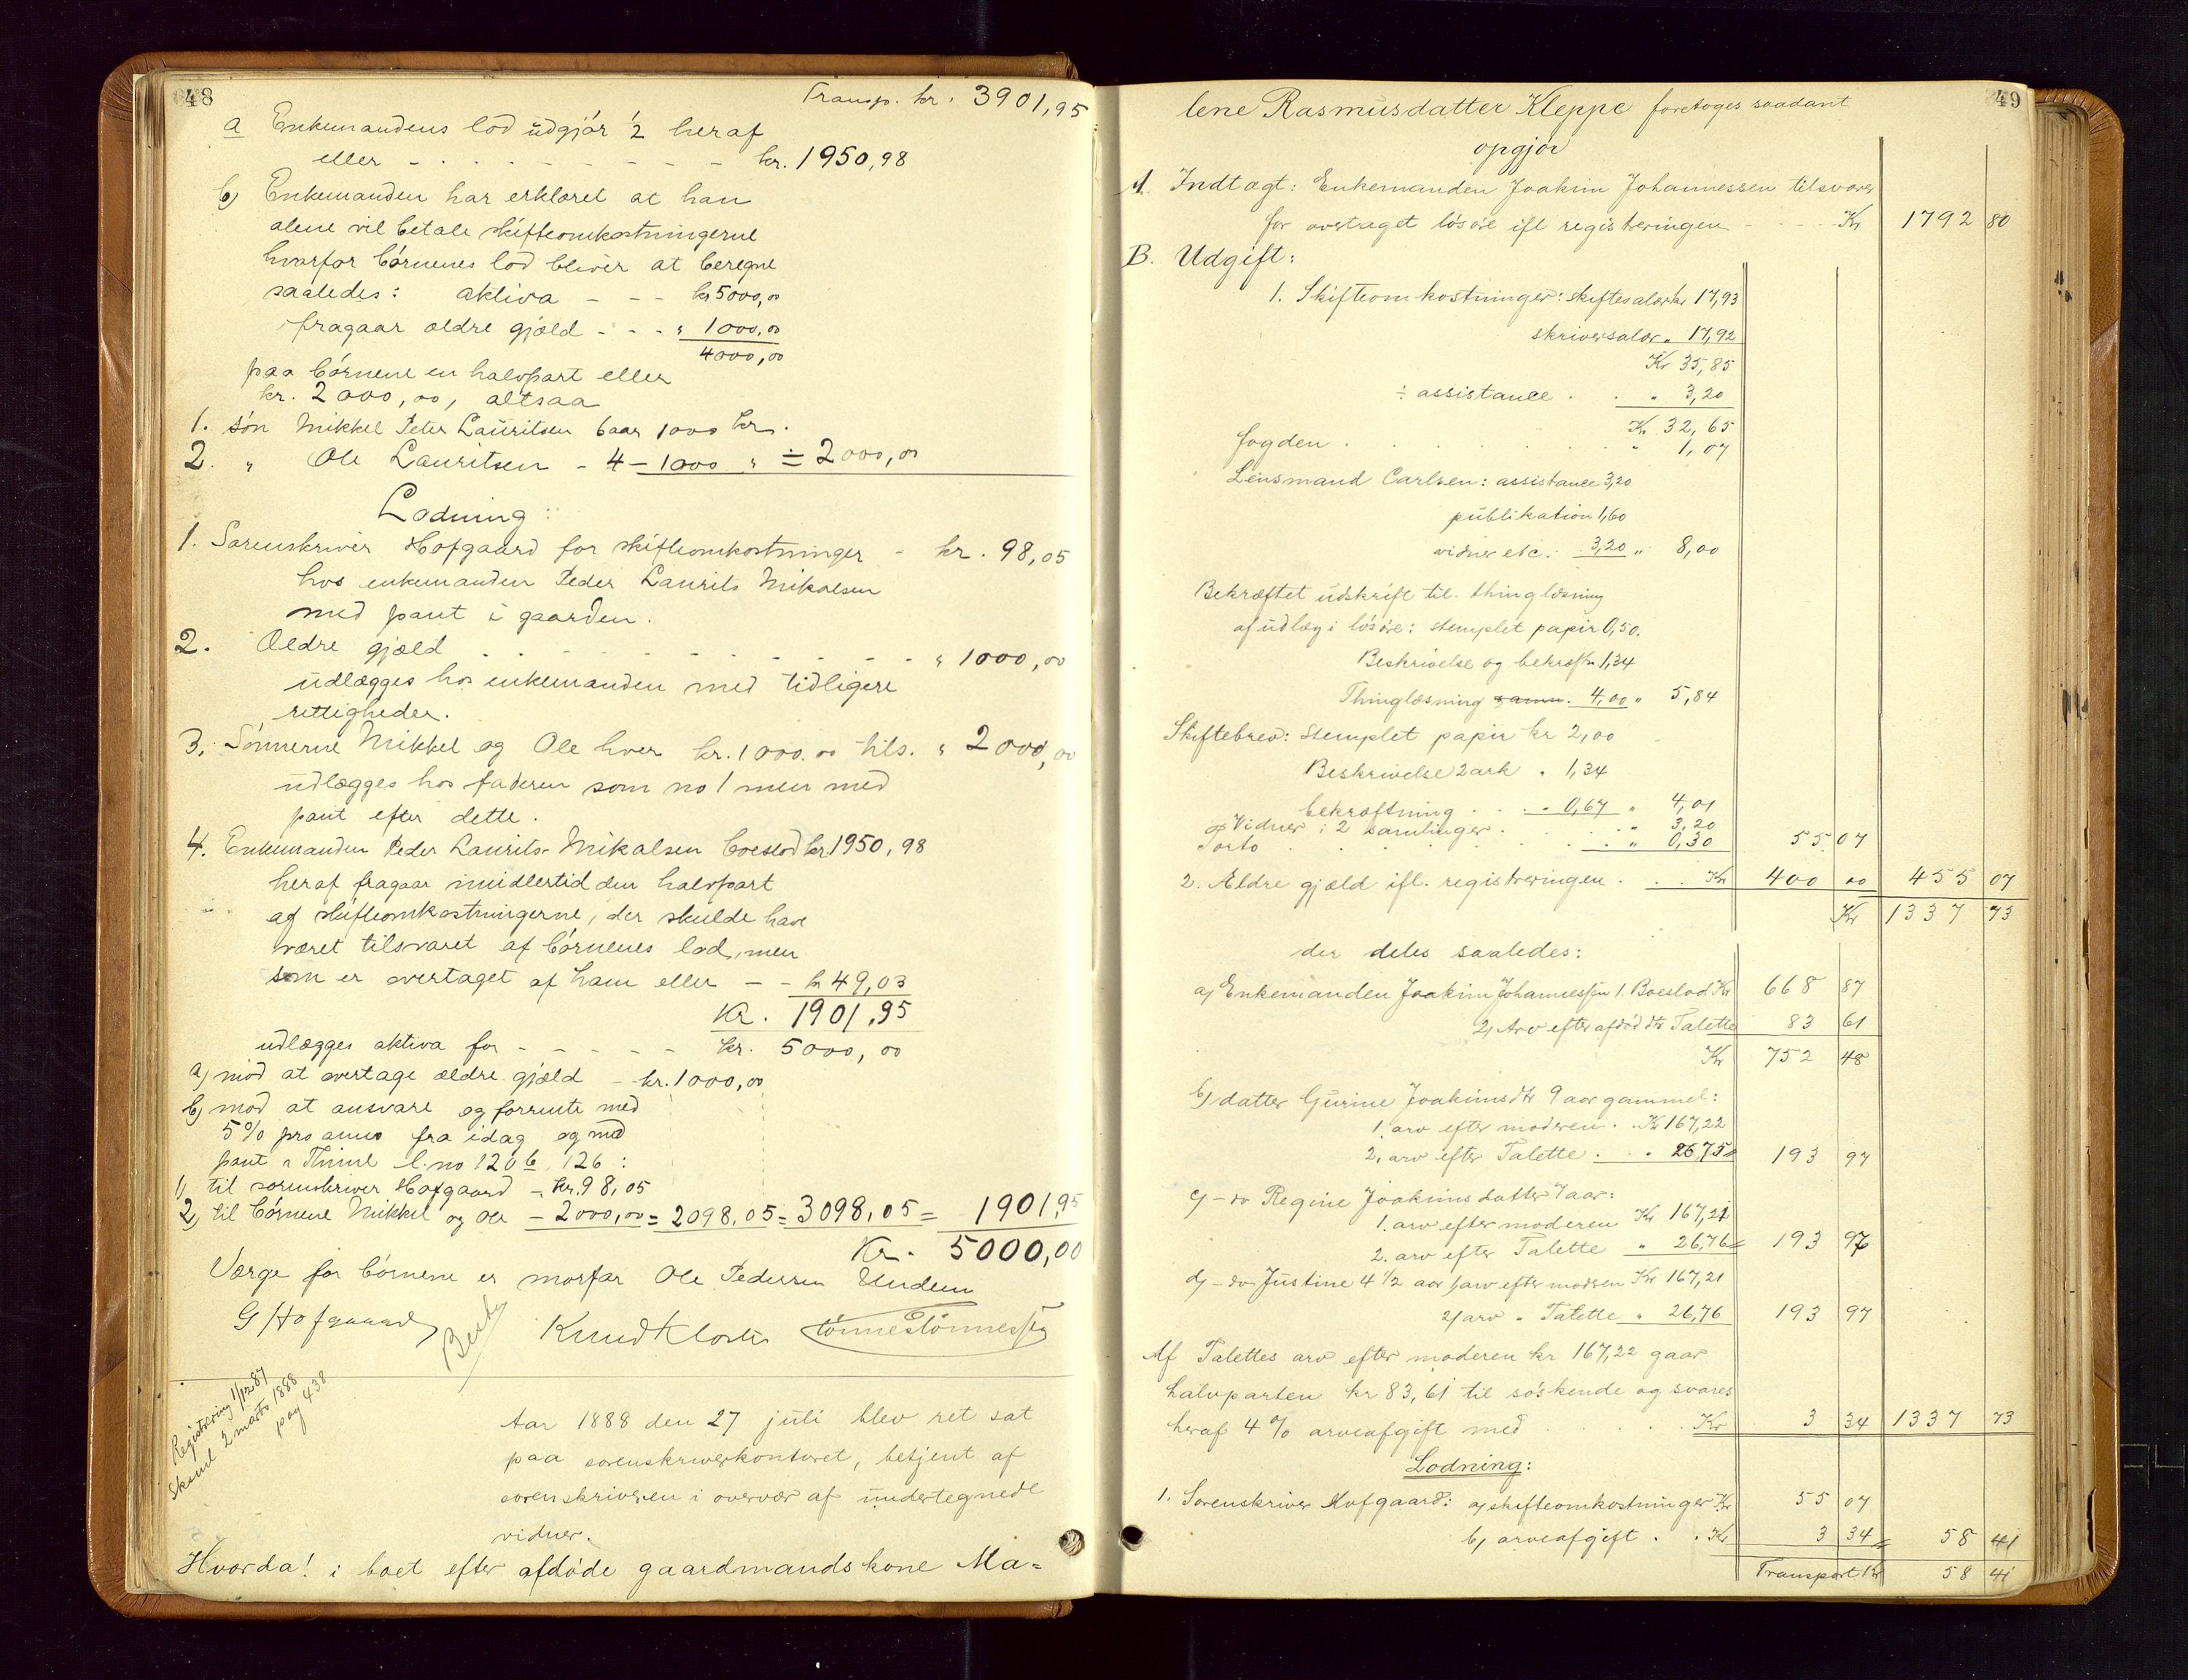 48
Transp. kr. 3901,95
a Enkemandens lod udgjør 1/2 heraf
eller - - - - - - - - kr. 1950,98
b) Enkemanden har erklæret at han
alene vil betale skifteomkostningerne
hvorfor børnenes lod bliver at beregne
saaledes: aktiva - - - kr 5000,00
fragaar ældre gjæld - - - " 1000,00
4000,00
paa børnene en halvpart eller
kr. 2000,00, altsaa
1. søn Mikkel Peter Lauritsen 6 aar 1000 kr.
2. " Ole Lauritsen - 4 - 1000 " = 2000,00
Lodning:
1. Sorenskriver Hofgaard for skifteomkostninger - kr. 98,05
hos enkemanden Peder Laurits Mikalsen
med pant i gaarden.
2. Ældre gjæld - - - - - - - - - " 1000,00
udlægges hos enkemanden med tidligere
rettigheder.
3. Sønnerne Mikkel og Ole hver kr. 1000.00 tils. " 2000,00
udlægges hos faderen som no 1 men med
pant efter dette.
4. Enkemanden Peder Laurits Mikalsen boeslod kr 1950,98
heraf fragaar imidlertid den halvpart
af skifteomkostningerne, der skulde have
været tilsvaret af børnenes lod, men
som er overtaget af ham eller - - kr 49,03
Kr. 1901,95
udlægges aktiva for - - - - - kr. 5000,00
a) mod at overtage ældre gjæld - kr. 1000,00
b) mod at ansvare og forrente med
5% pro anno fra idag og med
pant i Thime l. no 120 b, 126 :
1) til sorenskriver Hofgaard - kr. 98,05
2) til børnene Mikkel og Ole - 2000,00 = 2098,05 = 3098,05 = 1901,95
Kr. 5000,00
Værge for børnene er morfar Ole Pedersen Undem
G Hofgaard Knud Kloster Tønnes Tønnessen
Registrering 1/12 87
Skeml 2 marts 1888
pag 438
Aar 1888 den 27 juli blev ret sat
paa sorenskriverkontoret, betjent af
sorenskriveren i overvær af undertegnede
vidner.
Hvorda! i boet efter afdøde gaardmandskone Ma=
49
lene Rasmusdatter Kleppe foretoges saadant
opgjør
A. Indtægt: Enkemanden Joakim Johannessen tilsvarer
for overtaget løsøre ifl registreringen - - - - Kr 1792 80
B. Udgift:
1. Skifteomkostninger: skiftesalær kr 17,93
skriversalær " 17,92
Kr 35,85
÷ assistance . . " 3,20
Kr 32,65
fogden . . . . . . . . " 1,07
Lensmand Carlsen: assistance 3,20
publikation 1,60
vidner etc. . 3,20 " 8,00
Bekræftet udskrift til thinglæsning
af udlæg i løsøre: stemplet papir 0,50.
Beskrivelse og bekræftn 1,34
Thinglæsning . 4,00 " 5,84
Skiftebrev: stemplet papir kr 2,00
Beskrivelse 2 ark " 1,34
bekræftning . . . " 0,67 " 4,01
Vidner i 2 samlinger . . . . " 3,20
Porto . . . . . . . " 0,30 55 07
2. Ældre gjæld ifl. registreringen . . . Kr 400 00 455 07
Kr 1337 73
der deles saaledes:
a) Enkemanden Joakim Johannessen 1. Boeslod Kr 668 87
2) Arv efter afdød dtr Talette 83 61
Kr 752 48
b) datter Gurine Joakimsdtr 9 aar gammel:
1. arv efter moderen . . Kr 167,22
2. arv efter Talette . . . " 26,75 = 193 97
c) - do Regine Joakimsdatter 7 aar:
1. arv efter moderen Kr 167,21
2. arv efter Talette " 26,76 = 193 97
d) - do Justine 4 1/2 aar 1) arv efter moderen Kr 167,21
2) arv " Talette " 26,76 193 97
Af Talettes arv efter moderen kr 167,22 gaar
halvparten kr 83,61 til søskende og svares
heraf 4 % arveafgift med . . . . Kr 3 34 1337 73
Lodning:
1. Sorenskriver Hofgaard: a) skifteomkostninger Kr 55 07
b) arveafgift . . Kr 3 34 = 58 41
Transport Kr 58 41